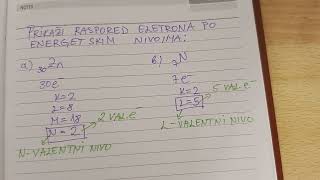 NOTES
PRIKAŽI RASPORED ELETRONA PO
ENERGETSKIM NIVOIMA:
a) ₃₀Zn
30e⁻
K=2
L=8
M=18
N=2
2 VAL.e⁻
N-VALENTNI NIVO
b) ₇N
7e⁻
K=2
L=5
5 VAL.e⁻
L-VALENTNI NIVO